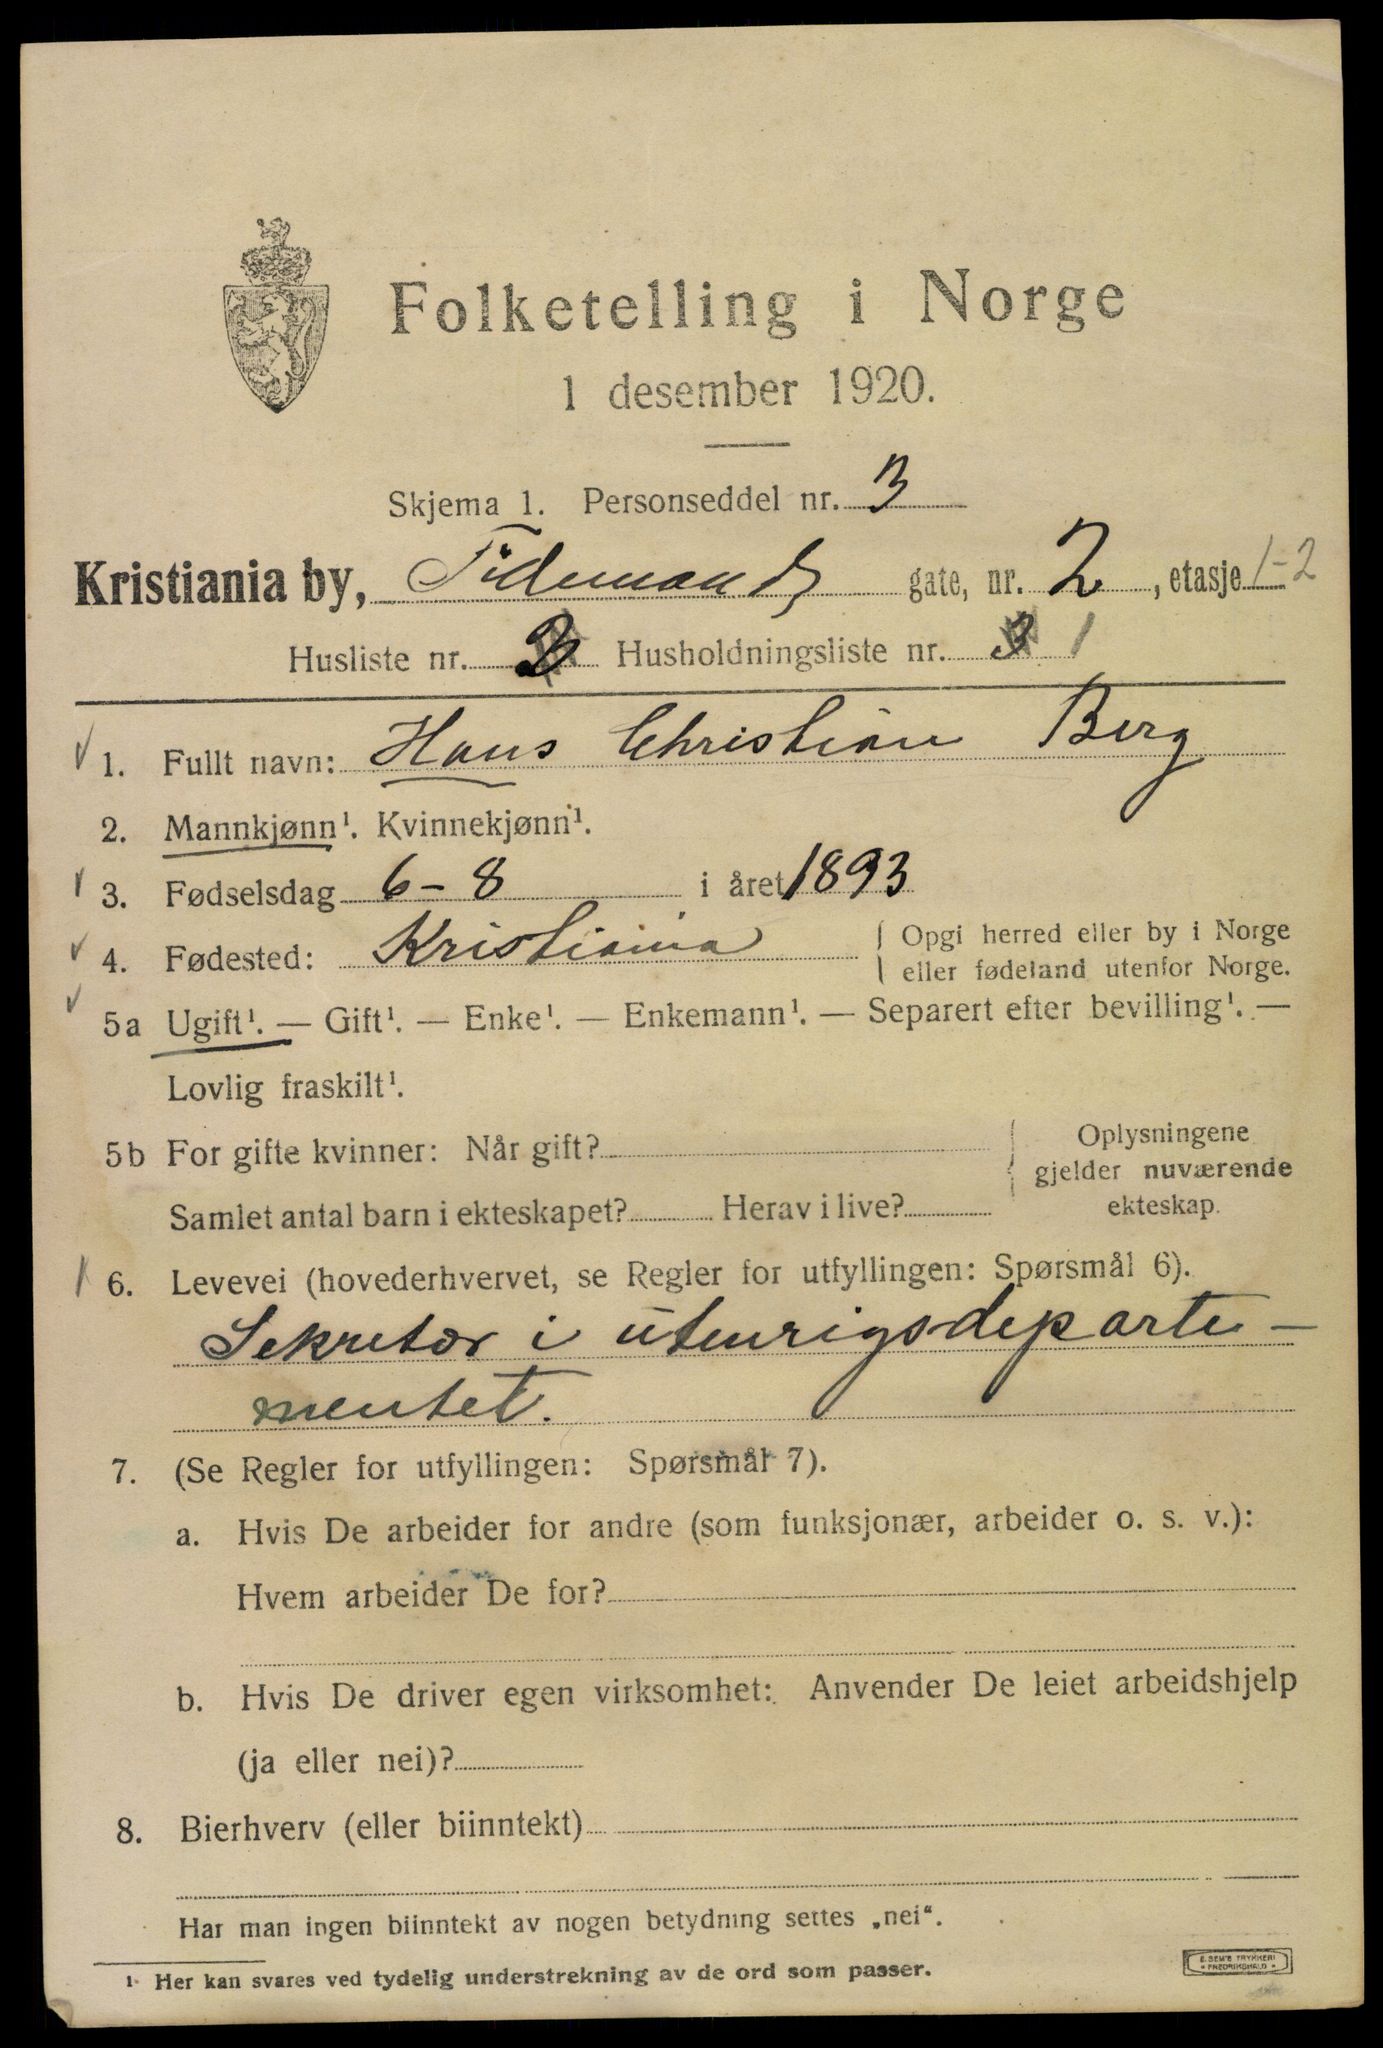 Folketelling i Norge
1 desember 1920.
Skjema 1. Personseddel nr. 3
Kristiania by, Tidemands gate, nr. 2, etasje 1-2
Husliste nr. 2 Husholdningsliste nr. 3 1
1. Fullt navn: Hans Christian Berg
2. Mannkjønn¹. Kvinnekjønn¹.
3. Fødselsdag 6-8 i året 1893
4. Fødested: Kristiania { Opgi herred eller by i Norge
eller fødeland utenfor Norge.
5a Ugift¹. — Gift¹. — Enke¹. — Enkemann¹. — Separert efter bevilling¹. —
Lovlig fraskilt¹.
5b For gifte kvinner: Når gift? { Oplysningene
gjelder nuværende
Samlet antal barn i ekteskapet? Herav i live? ekteskap.
6. Levevei (hovederhvervet, se Regler for utfyllingen: Spørsmål 6).
Sekretær i utenrigsdeparte-
mentet.
7. (Se Regler for utfyllingen: Spørsmål 7).
a. Hvis De arbeider for andre (som funksjonær, arbeider o. s. v.):
Hvem arbeider De for?
b. Hvis De driver egen virksomhet: Anvender De leiet arbeidshjelp
(ja eller nei)?
8. Bierhverv (eller biinntekt)
Har man ingen biinntekt av nogen betydning settes „nei“.
¹ Her kan svares ved tydelig understrekning av de ord som passer.
E. SEM'S TRYKKERI
* FREDRIKSHALD *